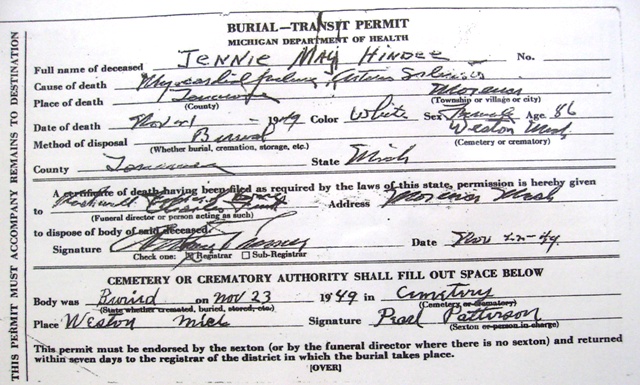 BURIAL—TRANSIT PERMIT
MICHIGAN DEPARTMENT OF HEALTH
Full name of deceased JENNIE MAY HINDEE No.
Cause of death Myocardial failure
Place of death Morenci
(County) (Township or village or city)
Date of death Nov 21 - 1949 Color White Sex Female Age 86
Method of disposal Burial Weston Mich
(Whether burial, cremation, storage, etc.) (Cemetery or crematory)
County State Mich
A certificate of death having been filed as required by the laws of this state, permission is hereby given
to Address Morenci Mich
(Funeral director or person acting as such)
to dispose of body of said deceased.
Signature Date Nov 22-49
Check one: Registrar Sub-Registrar
CEMETERY OR CREMATORY AUTHORITY SHALL FILL OUT SPACE BELOW
Body was Buried on Nov 23 1949 in Cemetery
(State whether cremated, buried, stored, etc.) (Cemetery or crematory)
Place Weston Mich Signature Pearl Patterson
(Sexton or person in charge)
This permit must be endorsed by the sexton (or by the funeral director where there is no sexton) and returned
within seven days to the registrar of the district in which the burial takes place.
[OVER]
THIS PERMIT MUST ACCOMPANY REMAINS TO DESTINATION